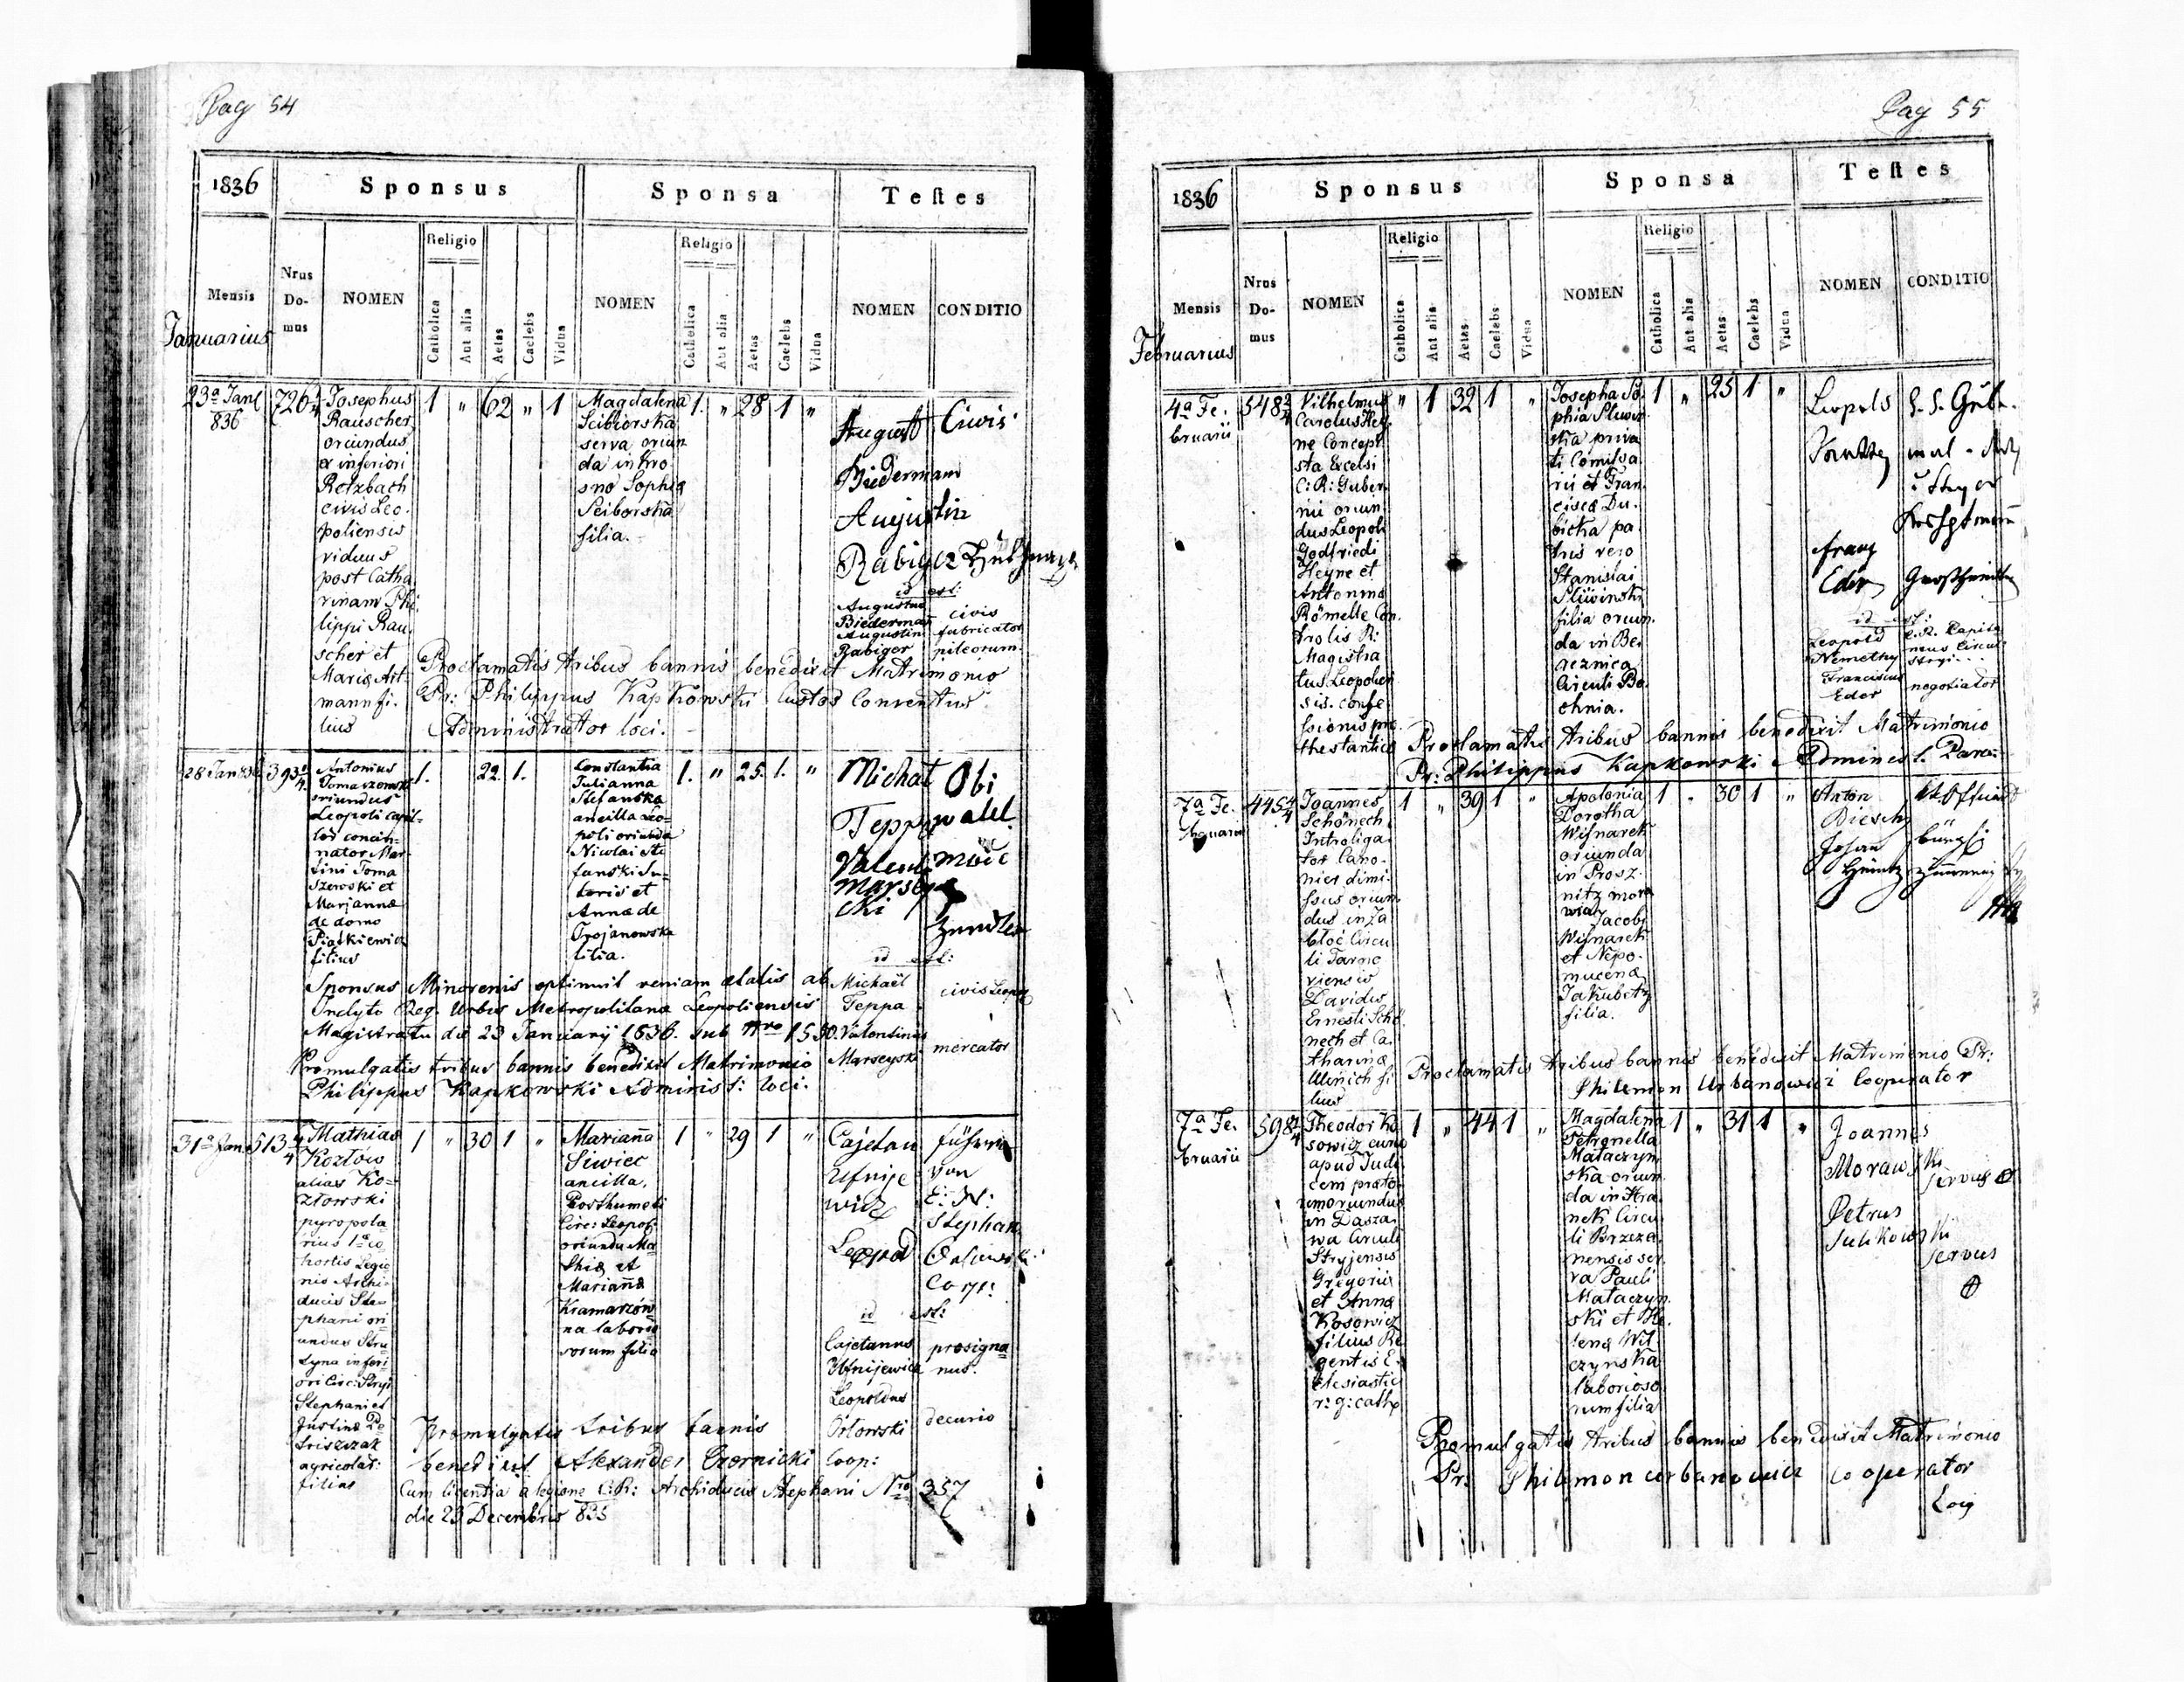 Pag 54
1836
Sponsus
Sponsa
Testes
Mensis
Nrus
Do-
mus
NOMEN
Religio
Catholica
Aut alia
Aetas
Caelebs
Vidua
NOMEN
Religio
Catholica
Aut alia
Aetas
Caelebs
Vidua
NOMEN
CONDITIO
Januarius
23a Jan
836
726
Josephus
Rauscher
oriundus
ex inferiori
Retzbach
civis Leo-
poliensis
viduus
post Catha
rinam Phi
lippi Rau
scher et
Mariæ Art-
mann fi-
lius
1 " 62 " 1
Magdalena
Scibiorska
serva oriun
da in Kro
sno Sophiæ
Sciborska
filia.
1. " 28 1 "
August Civis
Biedermann
Augustin
Rabiger
id est:
Augustus
Biederman civis
Augustin fabricator
Rabiger pileorum.
Proclamatis tribus bannis benedixit Matrimonio
Pr: Philippus Kapkowski Custos Conventus
Administrator loci.
28 Jan 836
393
Antonius
Tomaszewski
oriundus
Leopoli capil-
los concin-
nator Mar-
tini Toma
szewski et
Mariannæ
de domo
Piatkiewicz
filius
1. 22. 1.
Constantia
Julianna
Stefanska
ancilla Leo-
poli oriunda
Nicolai Ste
fanski Su-
toris et
Annæ de
Trojanowska
filia.
1. " 25. 1. "
Michał Obi
Teppa watel
Valenti
Marsey
cki
id est:
Michaël
Teppa civis Leopol
Valentinus
Marseyski mercator
Sponsus Minorenis optinuit veniam ætatis ab
Indyto Reg. Urbis Metropolitana Leopoliensis
Magistratu die 23 Januarij 1836. sub Nro 1530.
Promulgatis tribus bannis benedixit Matrimonio
Philippus Kapkowski Administ: loci.
31a Jan
513
Mathias
Kozłow
alias Ko-
złowski
pyropola
rius 1æ co
hortis Legio
nis Archi-
ducis Ste-
phani ori
undus Stru
tyna inferi-
ori Circ: Stryi
Stephani et
Justinæ Pe
triszczak
agricolar:
filius
1 " 30 1 "
Marianna
Siwiec
ancilla,
Porthumeti
Circ: Leopol:
oriunda Ma
thiæ et
Mariannæ
Kramarzów
na laborio
sorum filia
1 " 29 1 "
Cajetan führer
Ufnije von
wicz E: H:
Stephan
Leopold
Corp:
id est:
Cajetanus prosigna
Ufnijewicz nus.
Leopoldus
Orłowski decurio
Promulgatis tribus bannis
benedixit Alexander Czornicki Coop:
Cum licentia a legione C:R: Archiducis Stephani Nro 357
die 23 Decembris 835
Pag 55
1836
Sponsus
Sponsa
Testes
Mensis
Nrus
Do-
mus
NOMEN
Religio
Catholica
Aut alia
Aetas
Caelebs
Vidua
NOMEN
Religio
Catholica
Aut alia
Aetas
Caelebs
Vidua
NOMEN
CONDITIO
Februarius
4a Fe.
bruarii
548
Vilhelmus
Carolus Hey
ne Concept
sta Excelsi
C: R: Guber
nii oriun
dus Leopoli
Godfriedi
Heyne et
Antoninæ
Römelle Con
trolis R:
Magistra
tus Leopolien
sis. confe
ssionis pro
thestanticæ
" 1 32 1 "
Josepha So
phia Sliwin
ska priva
ti Comissa
rii et Fran
cisca Du
bicka pa
tris vero
Stanislai
Sliwinski
filia oriun
da in Be
reznica
Circuli Bo
chnia.
1 " 25 1 "
Leopold
Franz
Eder
id est:
Leopold C. R. Capita
Nemethy neus Circul
Stryi...
Franciscus
Eder negotiator
Proclamatis tribus bannis benedixit Matrimonio
Pr: Philippus Kapkowski Administ. Paro:
7a Fe.
bruarii
445
Joannes
Schönech
Introliga
tor Cano
nier dimi
ssus oriun
dus in Za
błoc Circu
li Tarno
viensis
Davidis
Ernesti Schö
nech et Ca
tharinæ
Ulinich fi
lius
1 " 39 1 "
Apolonia
Dorotha
Wisnarek
oriunda
in Prosz
nitz mora
wia Jacobi
Wisnarek
et Nepo
mucenæ
Jakubetz
filia.
1 " 30 1 "
Anton
Diesch
Johan
Proclamatis tribus bannis benedixit Matrimonio Pr:
Philemon Urbanowicz Cooperator
7a Fe.
bruarii
598
Theodor Ko
sowicz
apud Judi
cem præto
rum oriundus
in Dasza
wa Circuli
Stryjensis
Gregorii
et Anna
Kosowicz
filius Re
gentis E
clesiastici
r: g: cath
1 " 44 1 "
Magdalena
Petronella
Mataczyn
ska oriun
da in Hra
nek Circu
li Brzeza
nensis ser
va Pauli
Mataczyn
ski et He
lenæ Wil
czynska
laborioso
rum filia
1 " 31 1 "
Joannes
Morawski
servus
Petrus
Sulikowski
servus
Promulgatis tribus bannis benedixit Matrimonio
Pr. Philemon Urbanowicz cooperator
Loci